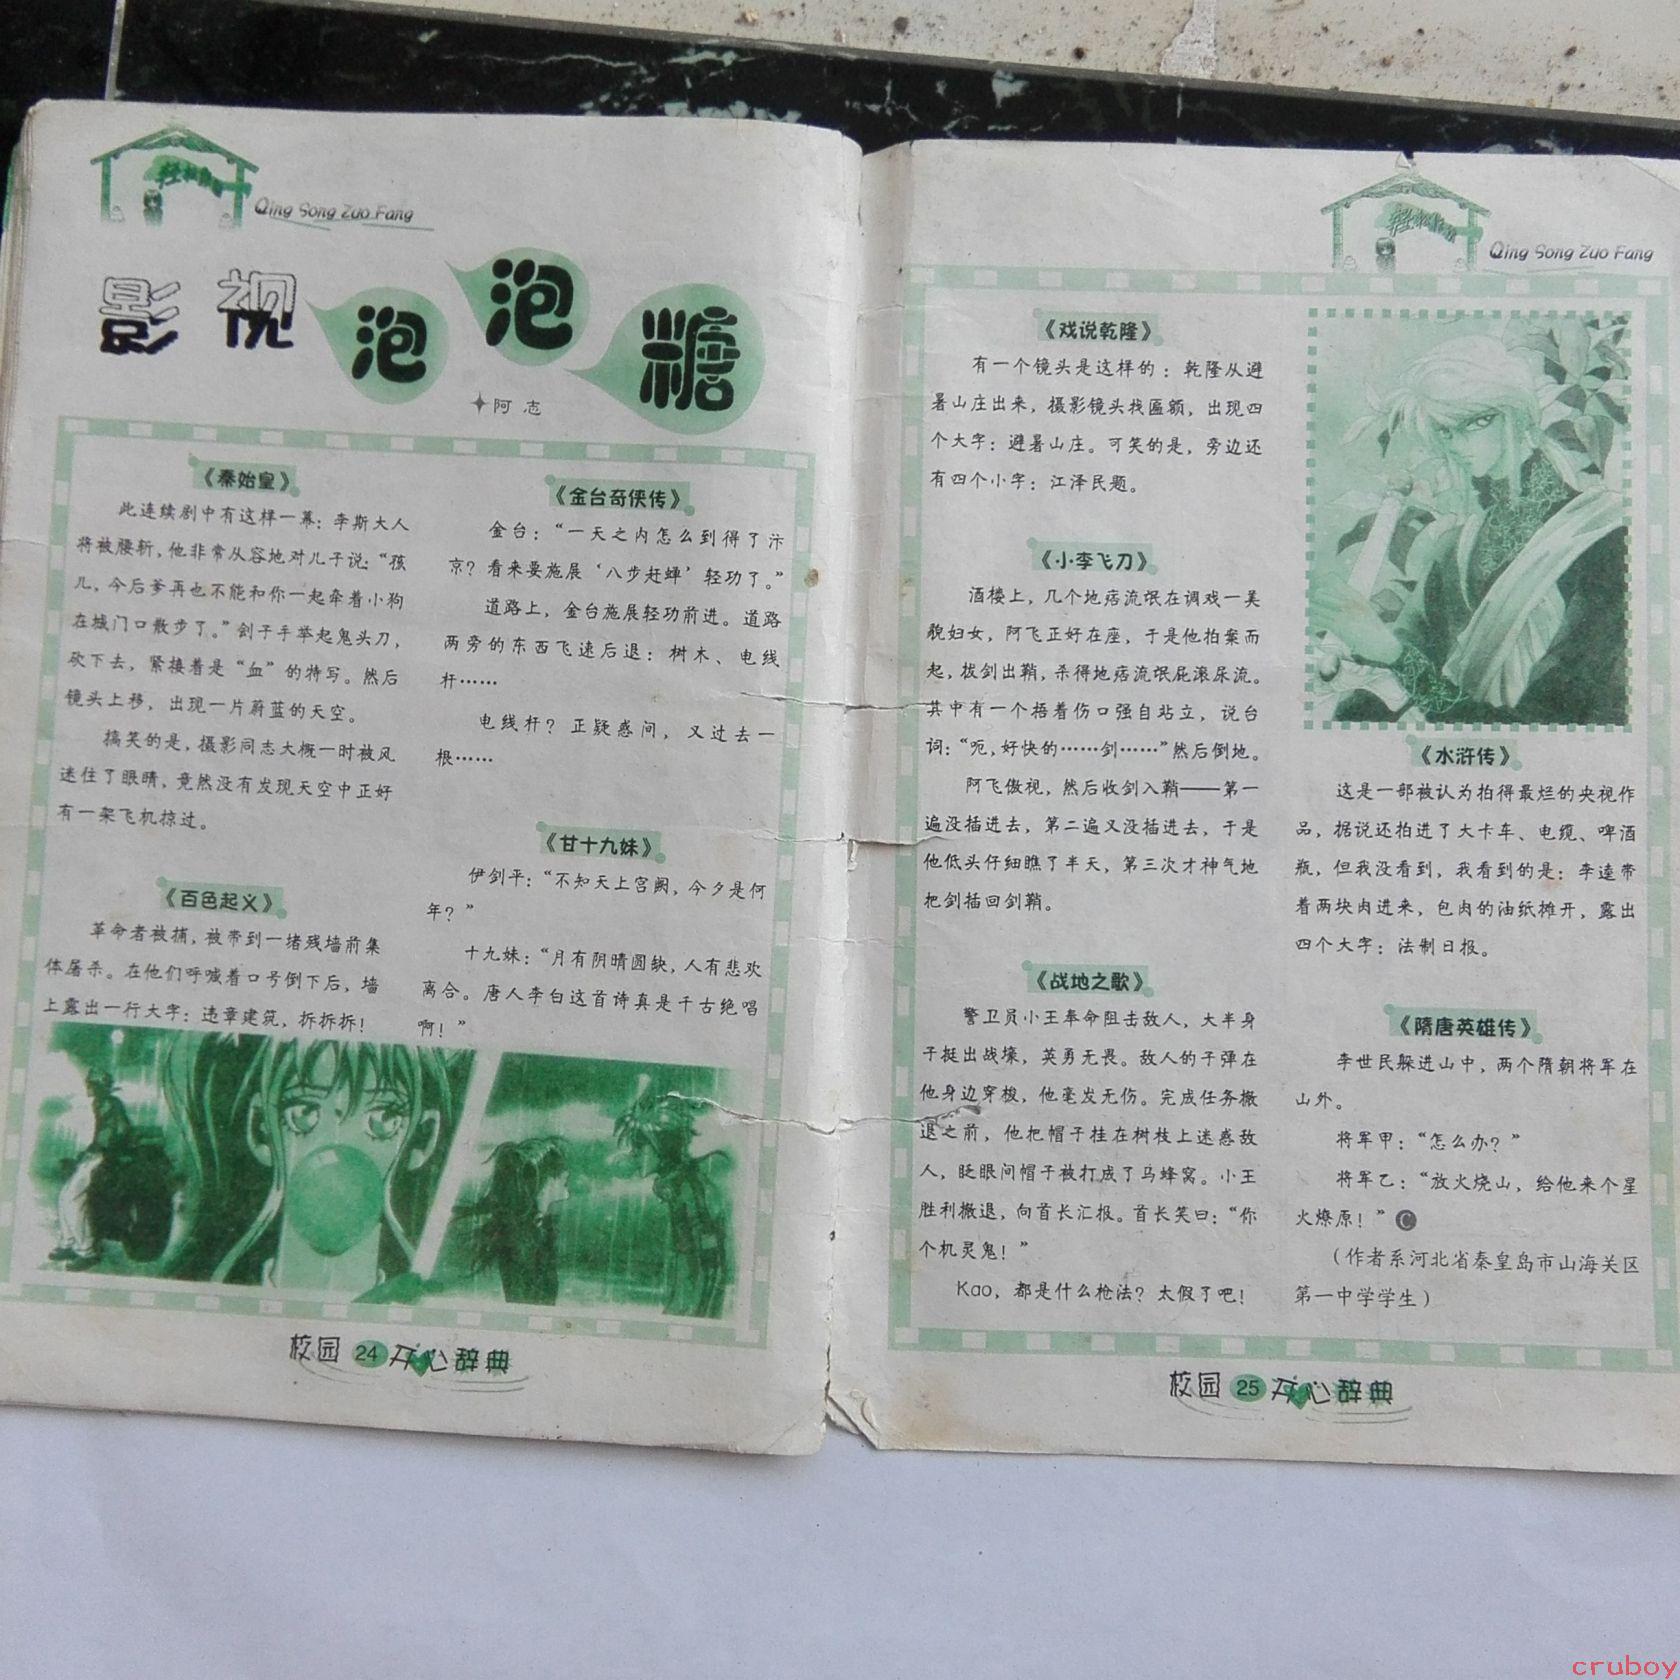 轻松作坊
Qing Song Zuo Fang
影视泡泡糖
阿志
《秦始皇》
此连续剧中有这样一幕：李斯大人
将被腰斩，他非常从容地对儿子说：“孩
儿，今后爹再也不能和你一起牵着小狗
在城门口散步了。”刽子手举起鬼头刀，
砍下去，紧接着是“血”的特写。然后
镜头上移，出现一片蔚蓝的天空。
搞笑的是，摄影同志大概一时被风
迷住了眼睛，竟然没有发现天空中正好
有一架飞机掠过。
《百色起义》
革命者被捕，被带到一堵残墙前集
体屠杀。在他们呼喊着口号倒下后，墙
上露出一行大字：违章建筑，拆拆拆！
《金台奇侠传》
金台：“一天之内怎么到得了汴
京？看来要施展‘八步赶蝉’轻功了。”
道路上，金台施展轻功前进。道路
两旁的东西飞速后退：树木、电线
杆……
电线杆？正疑惑间，又过去一
根……
《甘十九妹》
伊剑平：“不知天上宫阙，今夕是何
年？”
十九妹：“月有阴晴圆缺，人有悲欢
离合。唐人李白这首诗真是千古绝唱
啊！”
校园 24 开心辞典
轻松作坊
Qing Song Zuo Fang
《戏说乾隆》
有一个镜头是这样的：乾隆从避
暑山庄出来，摄影镜头找匾额，出现四
个大字：避暑山庄。可笑的是，旁边还
有四个小字：江泽民题。
《小李飞刀》
酒楼上，几个地痞流氓在调戏一美
貌妇女，阿飞正好在座，于是他拍案而
起，拔剑出鞘，杀得地痞流氓屁滚尿流。
其中有一个捂着伤口强自站立，说台
词：“呃，好快的……剑……”然后倒地。
阿飞傲视，然后收剑入鞘——第一
遍没插进去，第二遍又没插进去，于是
他低头仔细瞧了半天，第三次才神气地
把剑插回剑鞘。
《战地之歌》
警卫员小王奉命阻击敌人，大半身
子挺出战壕，英勇无畏。敌人的子弹在
他身边穿梭，他毫发无伤。完成任务撤
退之前，他把帽子挂在树枝上迷惑敌
人，眨眼间帽子被打成了马蜂窝。小王
胜利撤退，向首长汇报。首长笑曰：“你
个机灵鬼！”
Kao，都是什么枪法？太假了吧！
《水浒传》
这是一部被认为拍得最烂的央视作
品，据说还拍进了大卡车、电缆、啤酒
瓶，但我没看到，我看到的是：李逵带
着两块肉进来，包肉的油纸摊开，露出
四个大字：法制日报。
《隋唐英雄传》
李世民躲进山中，两个隋朝将军在
山外。
将军甲：“怎么办？”
将军乙：“放火烧山，给他来个星
火燎原！”C
（作者系河北省秦皇岛市山海关区
第一中学学生）
校园 25 开心辞典
cruboy